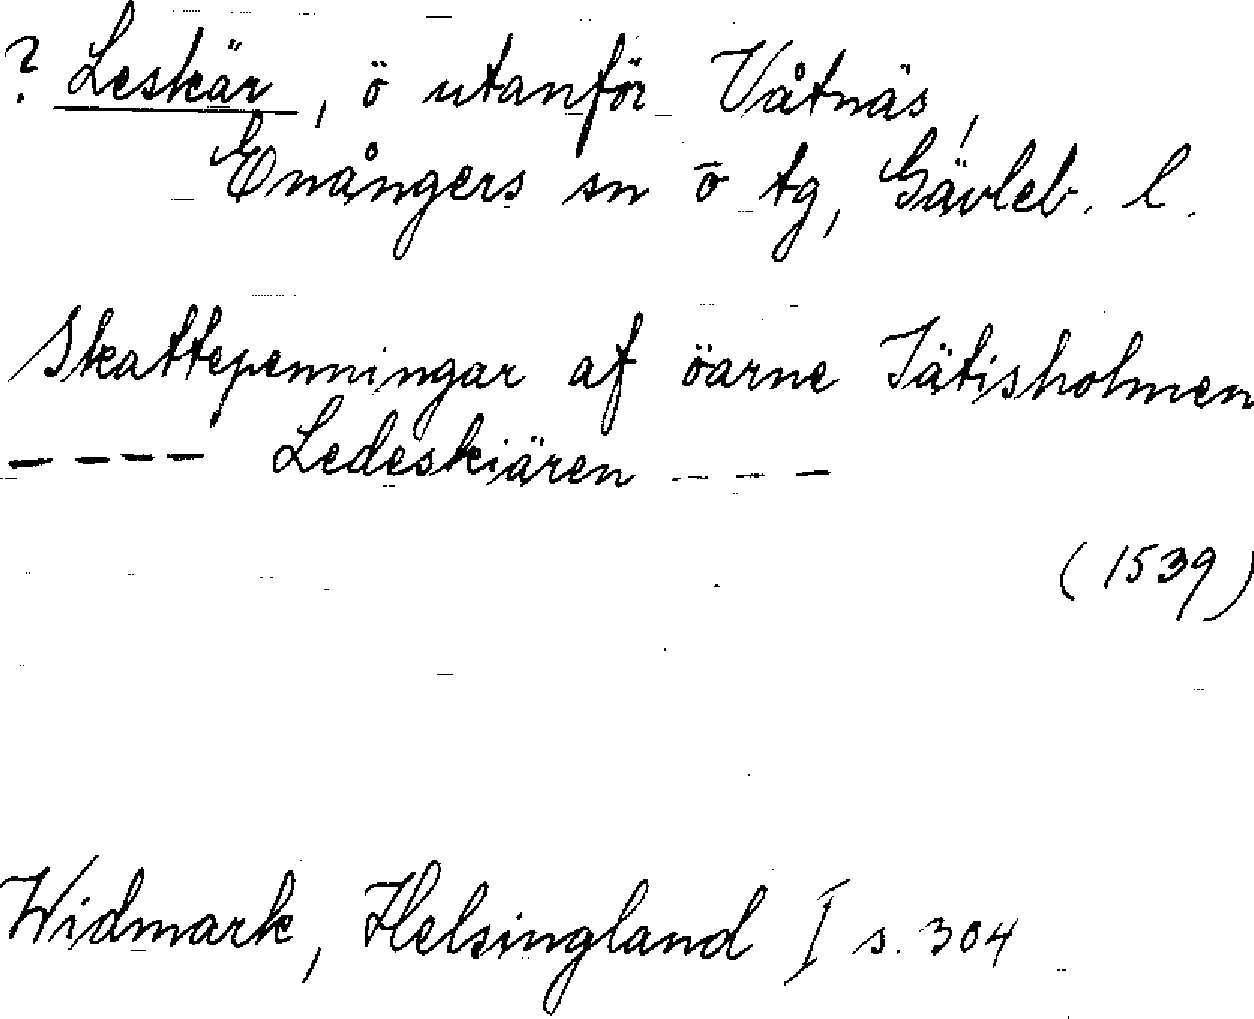 ? Leskär, ö utanför Våtnäs,
Enångers sn o tg, Gävleb. l.
Skattepenningar af öarne Jätisholmen
---- Ledeskiären ---
(1539)
Widmark, Helsingland I s. 304